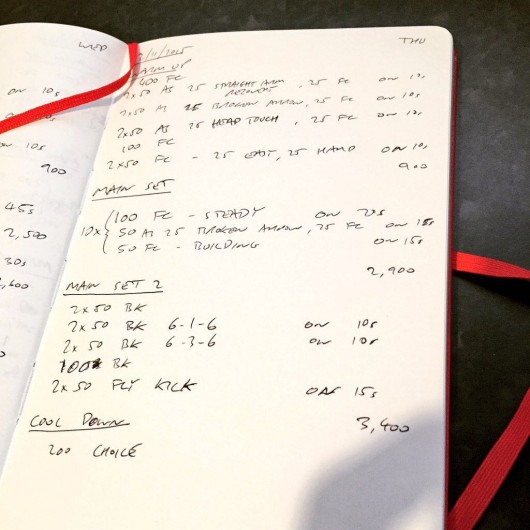 WED
ON 10s
ON 10s
10s
900
45s
2,500
30s
THU
/11/2015
WARM UP
400 FC
2x50 AS 25 STRAIGHT ARM RECOVERY, 25 FC ON 10s
2x50 AS 25 BROKEN ARROW, 25 FC ON 10s
2x50 AS 25 HEAD TOUCH, 25 FC ON 10s
100 FC
2x50 FC - 25 EASY, 25 HARD ON 10s
900
MAIN SET
10x { 100 FC - STEADY ON 20s
50 AS 25 BROKEN ARROW, 25 FC ON 15s
50 FC - BUILDING ON 15s
2,900
MAIN SET 2
2x50 BK
2x50 BK 6-1-6 ON 10s
2x50 BK 6-3-6 ON 10s
100 BK
2x50 FLY KICK ON 15s
3,400
COOL DOWN
200 CHOICE